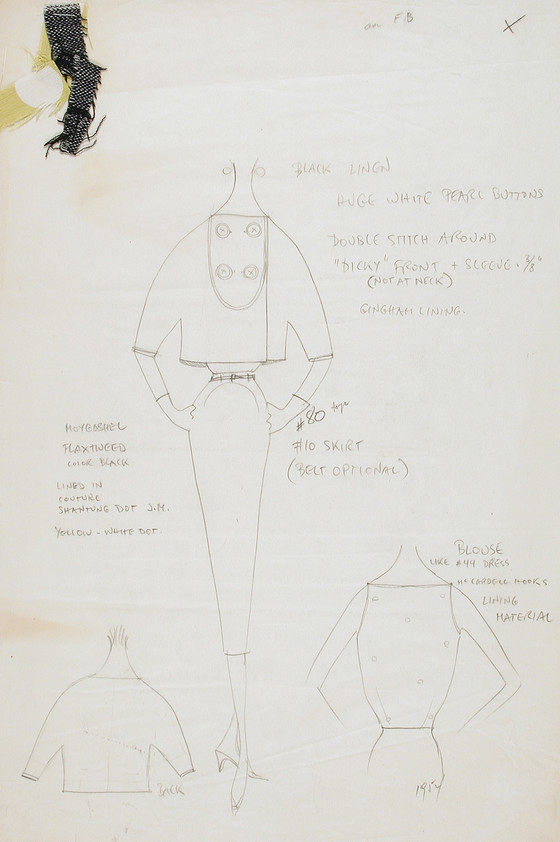 on F/B
X
BLACK LINEN
HUGE WHITE PEARL BUTTONS
DOUBLE STITCH AROUND
"DICKY" FRONT + SLEEVE. 3/8"
(NOT AT NECK)
GINGHAM LINING.
#80 top
#10 SKIRT
(BELT OPTIONAL)
MOYGASHEL
FLAXTWEED
COLOR BLACK
LINED IN
COUTURE
SHANTUNG DOT J.M.
YELLOW - WHITE DOT
BLOUSE
LIKE #44 DRESS
McCARDELL HOOKS
LINING
MATERIAL
BACK
1954